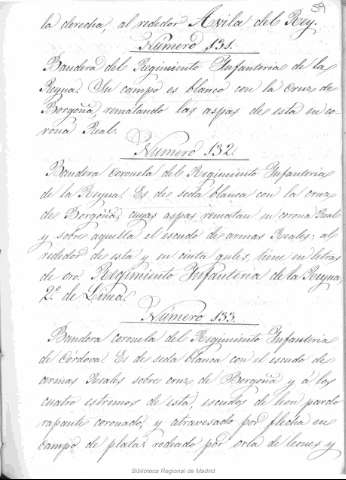 59
la derecha, al rededor Avila del Rey.
Numero 131.
Bandera del Regimiento Infanteria de la
Reyna. Su campo es blanco con la Cruz de
Borgoña, rematando las aspas de esta en co-
rona Real.
Numero 132.
Bandera coronela del Regimiento Infanteria
de la Reyna. Es de seda blanca con la cruz
de Borgoña, cuyas aspas rematan en corona Real
y sobre aquella el escudo de armas Reales; al
rededor de esta y en cinta gules, tiene en letras
de oro Regimiento Infanteria de la Reyna,
2º de Linea.
Numero 133.
Bandera coronela del Regimiento Infanteria
de Córdova. Es de seda blanca con el escudo de
armas Reales sobre cruz de Borgoña y á los
cuatro estremos de esta, escudos de leon pardo
rapante coronado, y atravesado por flecha en
campo de plata rodeado por orla de leones y
Biblioteca Regional de Madrid